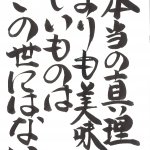 本当の真理
よりも美味
しいものは
この世にはない